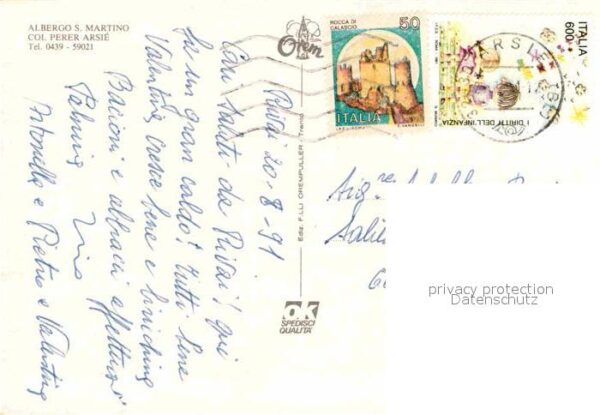 ALBERGO S. MARTINO
COL PERER ARSIÈ
Tel. 0439 - 59021
Rivai 20.8.91
Cari saluti da Rivai! Qui
fa un gran caldo! Tutti bene
Valentina cresce bene e
Bacioni e abbracci affettuosi
Palmira
Antonella e Pietro e Valentina
Orem
Ediz. F.LLI OREMPULLER - Trento
OK
SPEDISCI
QUALITÀ
ROCCA DI
CALASCIO
50
ITALIA
ITALIA
600
I DIRITTI DELL'INFANZIA
ARSIE
Sig.
privacy protection
Datenschutz